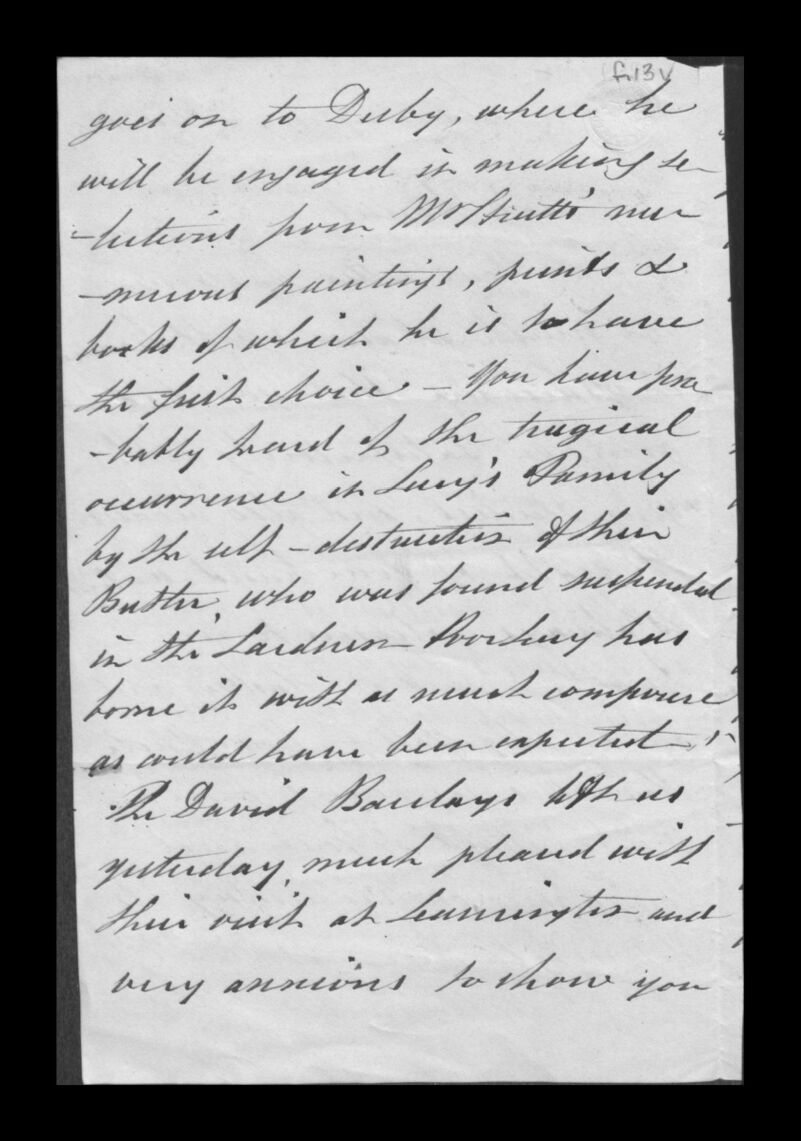 f.13v
goes on to Derby, where he
will be engaged in making se-
-lections from Mr Strutts' nu-
-merous paintings, prints &
books of which he is to have
the first choice – You have pro
-bably heard of the tragical
occurrence in Lucy's Family
by the self-destruction of their
Butler, who was found suspended
in the Larder – Poor Lucy has
borne it with as much composure
as could have been expected –
The David Barclays left us
yesterday, much pleased with
their visit at Leamington and
very anxious to show you